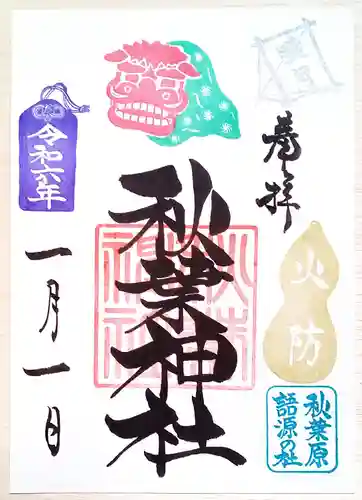 奉拝
火防
秋葉原
語源の社
秋葉神社
令和六年
一月一日